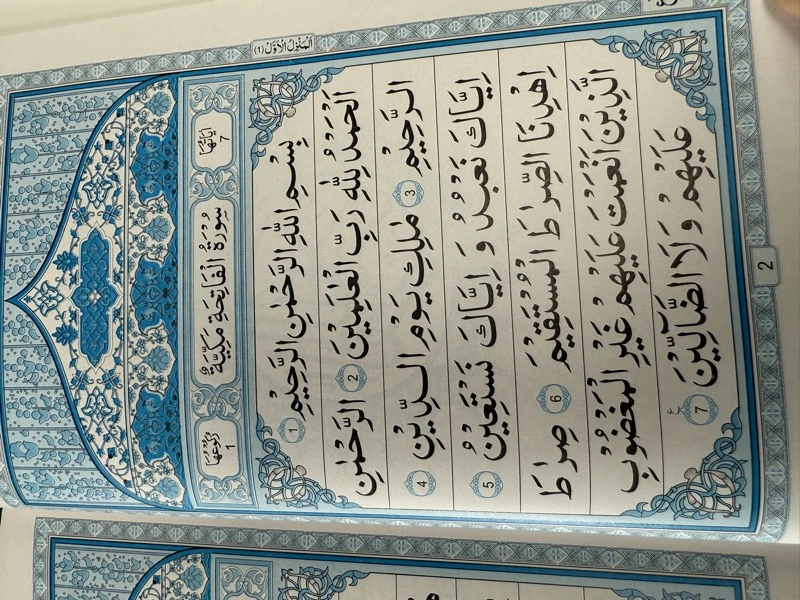 اَلْمَنْزِلُ الْاَوَّلُ ﴿1﴾
اٰيَاتُهَا 7
سُوْرَةُ الْفَاتِحَةِ مَكِّيَّةٌ
رُكُوْعُهَا 1
بِسْمِ اللّٰهِ الرَّحْمٰنِ الرَّحِيْمِ 1
اَلْحَمْدُ لِلّٰهِ رَبِّ الْعٰلَمِيْنَ 2 الرَّحْمٰنِ
الرَّحِيْمِ 3 مٰلِكِ يَوْمِ الدِّيْنِ 4
اِيَّاكَ نَعْبُدُ وَ اِيَّاكَ نَسْتَعِيْنُ 5
اِهْدِنَا الصِّرَاطَ الْمُسْتَقِيْمَ 6 صِرَاطَ
الَّذِيْنَ اَنْعَمْتَ عَلَيْهِمْ غَيْرِ الْمَغْضُوْبِ
عَلَيْهِمْ وَ لَا الضَّآلِّيْنَ 7 ع
2